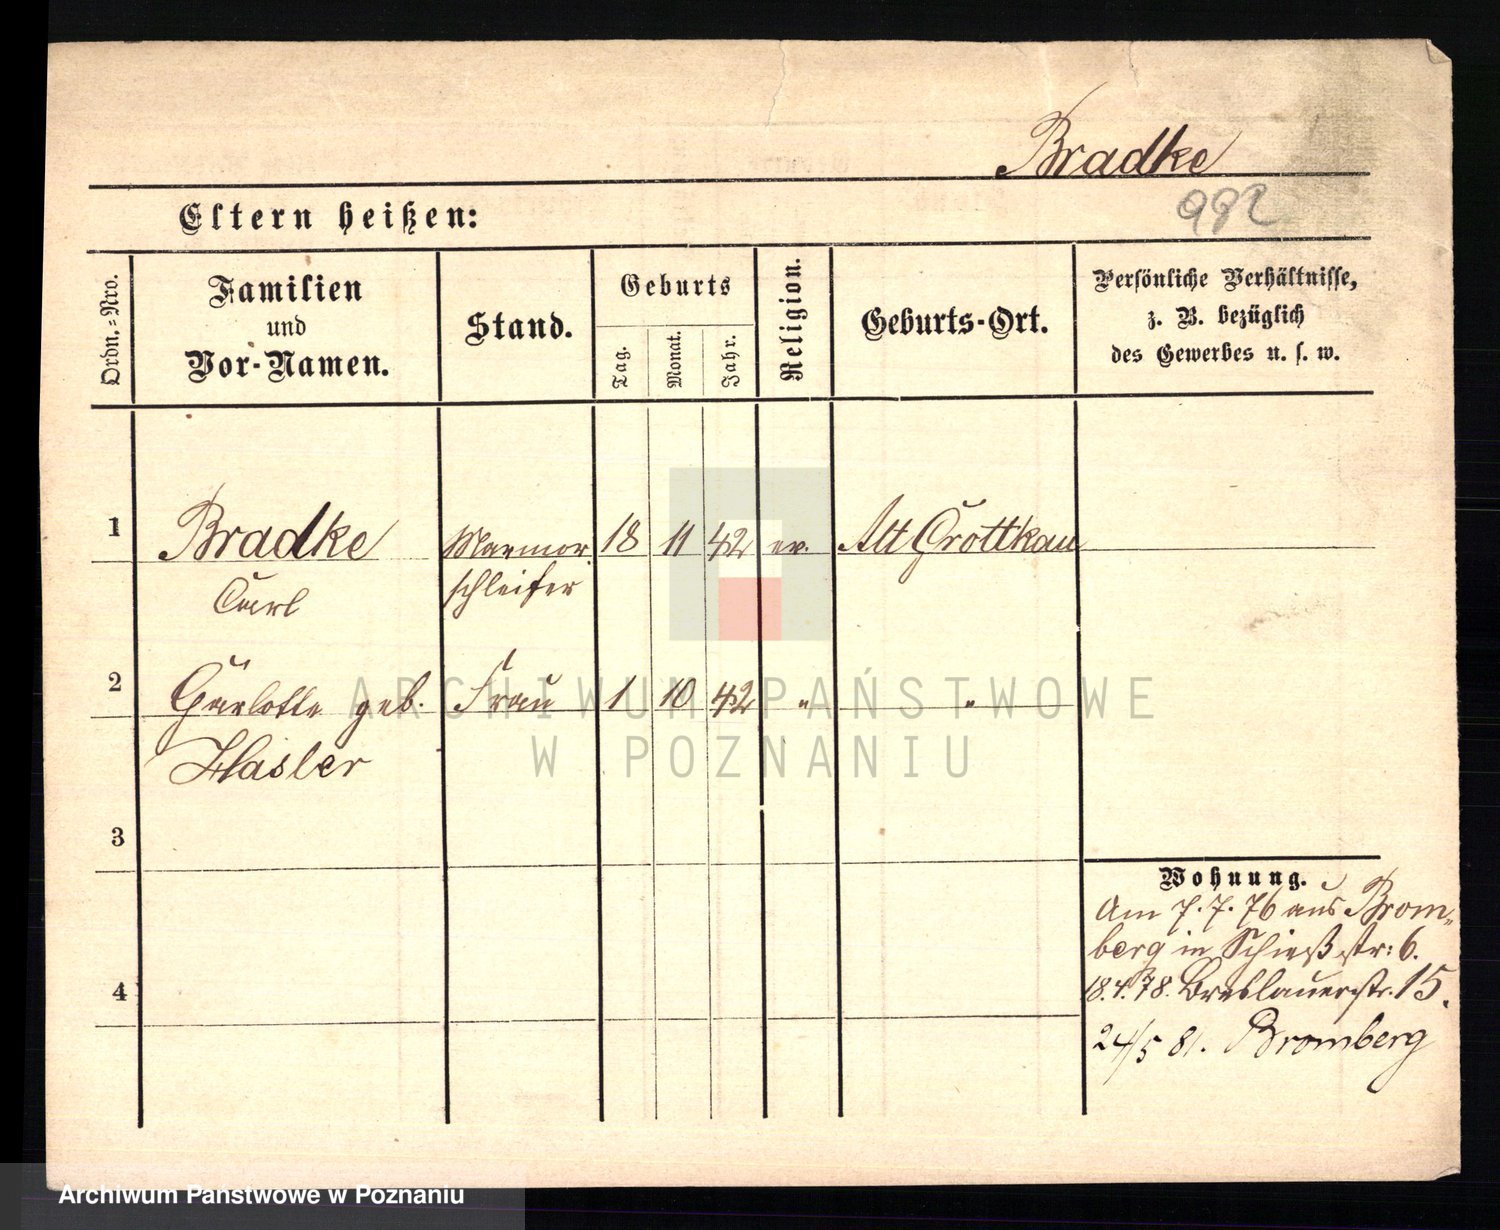 Bradke
982
Eltern heißen:
Ordn.=Nro.
Familien
und
Vor-Namen.
Stand.
Geburts
Tag.
Monat.
Jahr.
Religion.
Geburts-Ort.
Persönliche Verhältnisse,
z. B. bezüglich
des Gewerbes u. s. w.
1 Bradke Marmor 18 11 42 ev. Alt Grottkau
Carl schleifer
2 Charlotte geb. Frau 1 10 42 " "
Hasler
3
4
Wohnung.
Am 7. 7. 76 aus Brom-
berg in Schießstr: 6.
18.4.78. Breslauerstr. 15.
24/5 81. Bromberg
ARCHIWUM PAŃSTWOWE
W POZNANIU
Archiwum Państwowe w Poznaniu